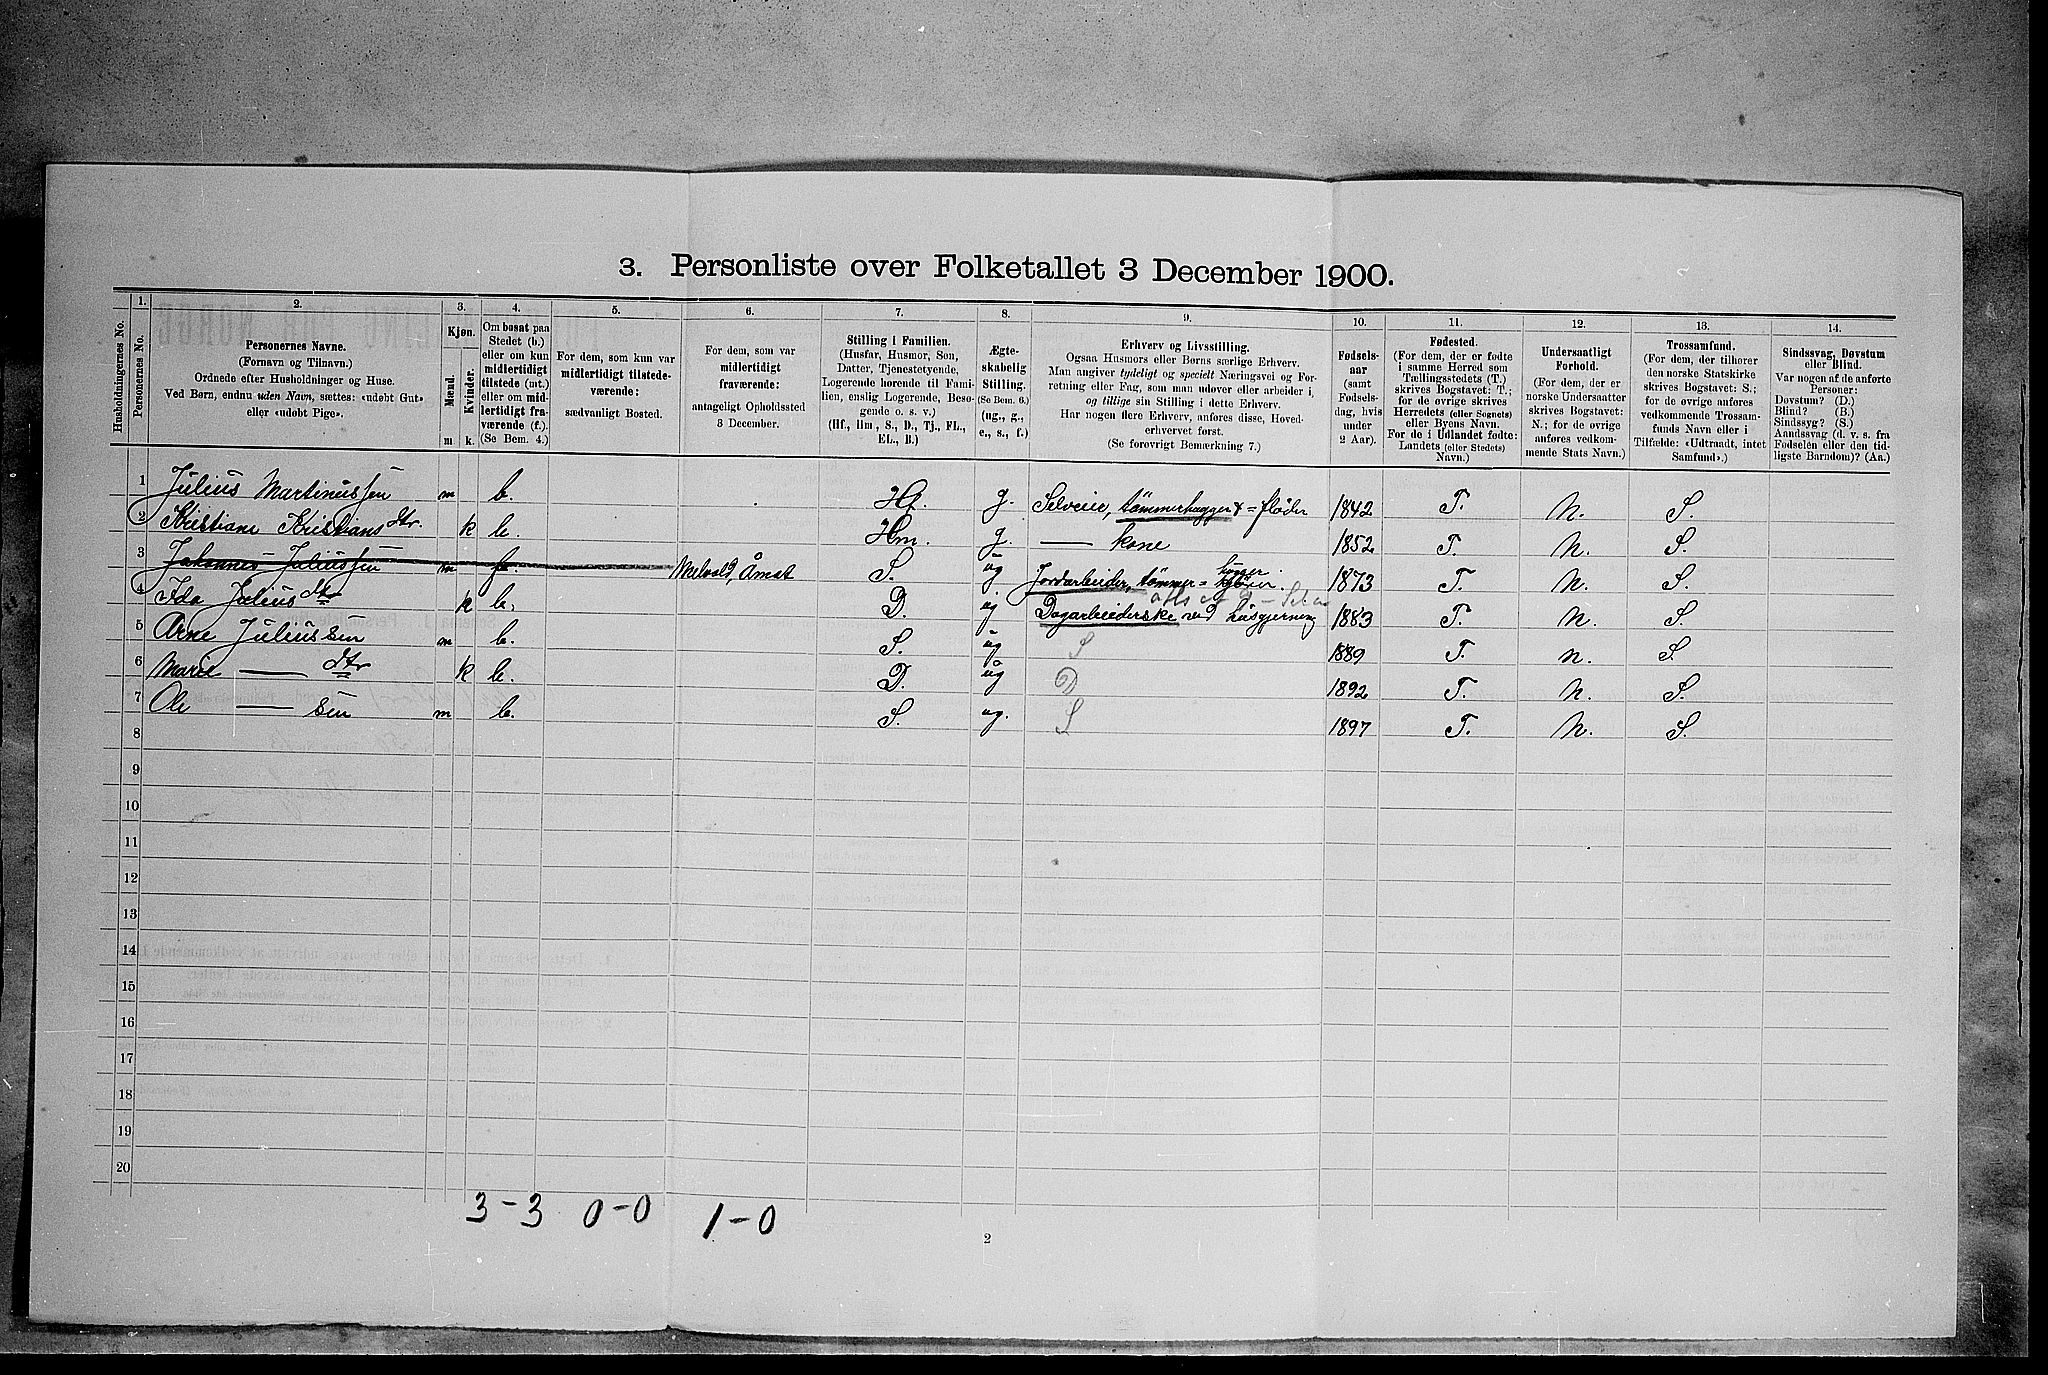 3. Personliste over Folketallet 3 December 1900.
1. 2. 3. 4. 5. 6. 7. 8. 9. 10. 11. 12. 13. 14.
Husholdningernes No.
Personernes No.
Personernes Navne.
(Fornavn og Tilnavn).
Ordnede efter Husholdninger og Huse.
Ved Børn, endnu uden Navn, sættes: «udøbt Gut»
eller «udøbt Pige».
Kjøn.
Mænd.
Kvinder.
m k.
Om bosat paa
Stedet (b.)
eller om kun
midlertidigt
tilstede (mt.)
eller om mid-
lertidigt fra-
værende (f.).
(Se Bem. 4.)
For dem, som kun var
midlertidigt tilstede-
værende:
sædvanligt Bosted.
For dem, som var
midlertidigt
fraværende:
antageligt Opholdssted
3 December.
Stilling i Familien.
(Husfar, Husmor, Søn,
Datter, Tjenestetyende,
Logerende hørende til Fami-
lien, enslig Logerende, Besø-
gende o. s. v.)
(Hf., Hm., S., D., Tj., FL.,
EL., B.)
Ægte-
skabelig
Stilling.
(Se Bem. 6.)
(ug., g.,
e., s., f.)
Erhverv og Livsstilling.
Ogsaa Husmors eller Børns særlige Erhverv.
Man angiver tydeligt og specielt Næringsvei og For-
retning eller Fag, som man udøver eller arbeider i,
og tillige sin Stilling i dette Erhverv.
Har nogen flere Erhverv, anføres disse, Hoved-
erhvervet først.
(Se forøvrigt Bemærkning 7.)
Fødsels-
aar
(samt
Fødsels-
dag, hvis
under
2 Aar).
Fødested.
(For dem, der er fødte
i samme Herred som
Tællingsstedets (T.)
skrives Bogstavet: T.;
for de øvrige skrives
Herredets (eller Sognets)
eller Byens Navn.
For de i Udlandet fødte:
Landets (eller Stedets)
Navn.)
Undersaatligt
Forhold.
(For dem, der er
norske Undersaatter
skrives Bogstavet:
N.; for de øvrige
anføres vedkom-
mende Stats Navn.)
Trossamfund.
(For dem, der tilhører
den norske Statskirke
skrives Bogstavet: S.;
for de øvrige anføres
vedkommende Trossam-
funds Navn eller i
Tilfælde: «Udtraadt, intet
Samfund».)
Sindssvag, Døvstum
eller Blind.
Var nogen af de anførte
Personer:
Døvstum? (D.)
Blind? (B.)
Sindssyg? (S.)
Aandssvag (d. v. s. fra
Fødselen eller den tid-
ligste Barndom)? (Aa.)
1 Julius Martinussen m b. Hf. g. Selveier, tømmerhugger & = fløder 1842 T. N. S.
2 Kristiane Kristiansdtr. k b. Hm. g. — kone 1852 T. N. S.
3 Johannes Juliussen m f. Melvold, Åmot S. ug Jordarbeider, tømmer = hugger 1873 T. N. S.
4 Ida Juliusdtr k b. D. ug Dagarbeiderske ved husgjerning 1883 T. N. S.
5 Arne Juliussen m b. S. ug S 1889 T. N. S.
6 Maren — dtr k b. D. ug D 1892 T. N. S.
7 Ole — sen m b. S. ug. S 1897 T. N. S.
8
9
10
11
12
13
14
15
16
17
18
19
20
3-3 0-0 1-0
2